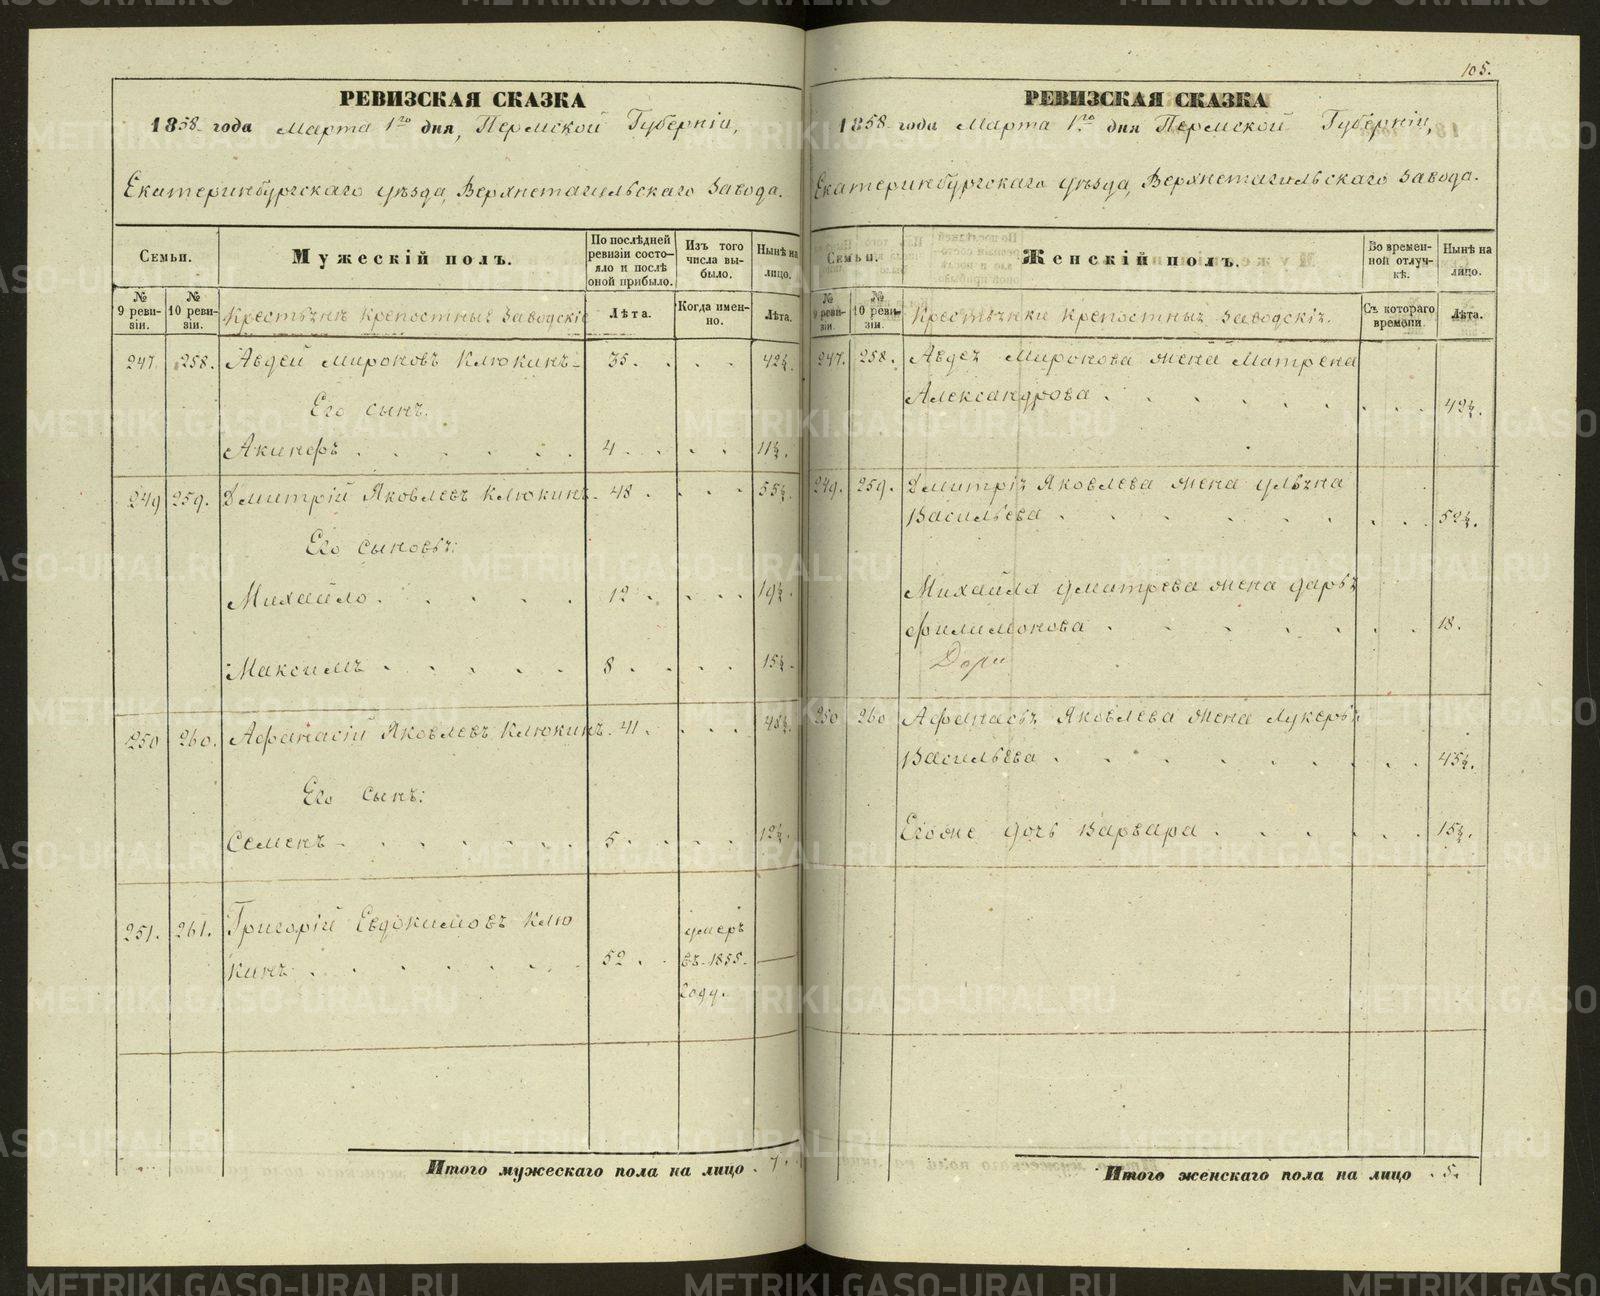 РЕВИЗСКАЯ СКАЗКА
1858 года Марта 1го дня, Пермской Губерніи,
Екатеринбургскаго уѣзда, Верхнетагильскаго Завода.
Семьи.
Мужескій полъ.
По послѣдней ревизіи состояло и послѣ оной прибыло.
Изъ того числа выбыло.
Нынѣ на лицо.
№ 9 ревизіи.
№ 10 ревизіи.
Крестьянѣ крепостныя Заводскіе
Лѣта.
Когда именно.
Лѣта.
247. 258. Авдей Мироновъ Клюкинъ 35. 42½.
Его сынъ:
Акинфъ 4. 11½.
249 259. Дмитрій Яковлевъ Клюкинъ 48. 55½.
Его сыновъя:
Михайло 12. 19½.
Максимъ 8. 15½.
250 260. Афанасій Яковлевъ Клюкинъ 41. 48½.
Его сынъ:
Семенъ 5. 12½.
251. 261. Григорій Евдокимовъ Клю
кинъ 52. умеръ въ 1855 году.
Итого мужескаго пола на лицо 7.
105.
РЕВИЗСКАЯ СКАЗКА
1858 года Марта 1го дня Пермской Губерніи,
Екатеринбургскаго уѣзда, Верхнетагильскаго Завода.
Семьи.
Женскій полъ.
Во временной отлучкѣ.
Нынѣ на лицо.
№ 9 ревизіи.
№ 10 ревизіи.
Крестьянки крепостныя Заводскія.
Съ котораго времени.
Лѣта.
247. 258. Авдея Миронова жена Матрена
Александрова 42½.
249. 259. Дмитрія Яковлева жена Ульяна
Васильева 52½.
Михайла Дмитрева жена Дарья
Филимонова 18.
250 260 Афанасья Яковлева жена Лукерья
Васильева 45½.
Егоже дочь Варвара 15½.
Итого женскаго пола на лицо 5.
METRIKI.GASO-URAL.RU